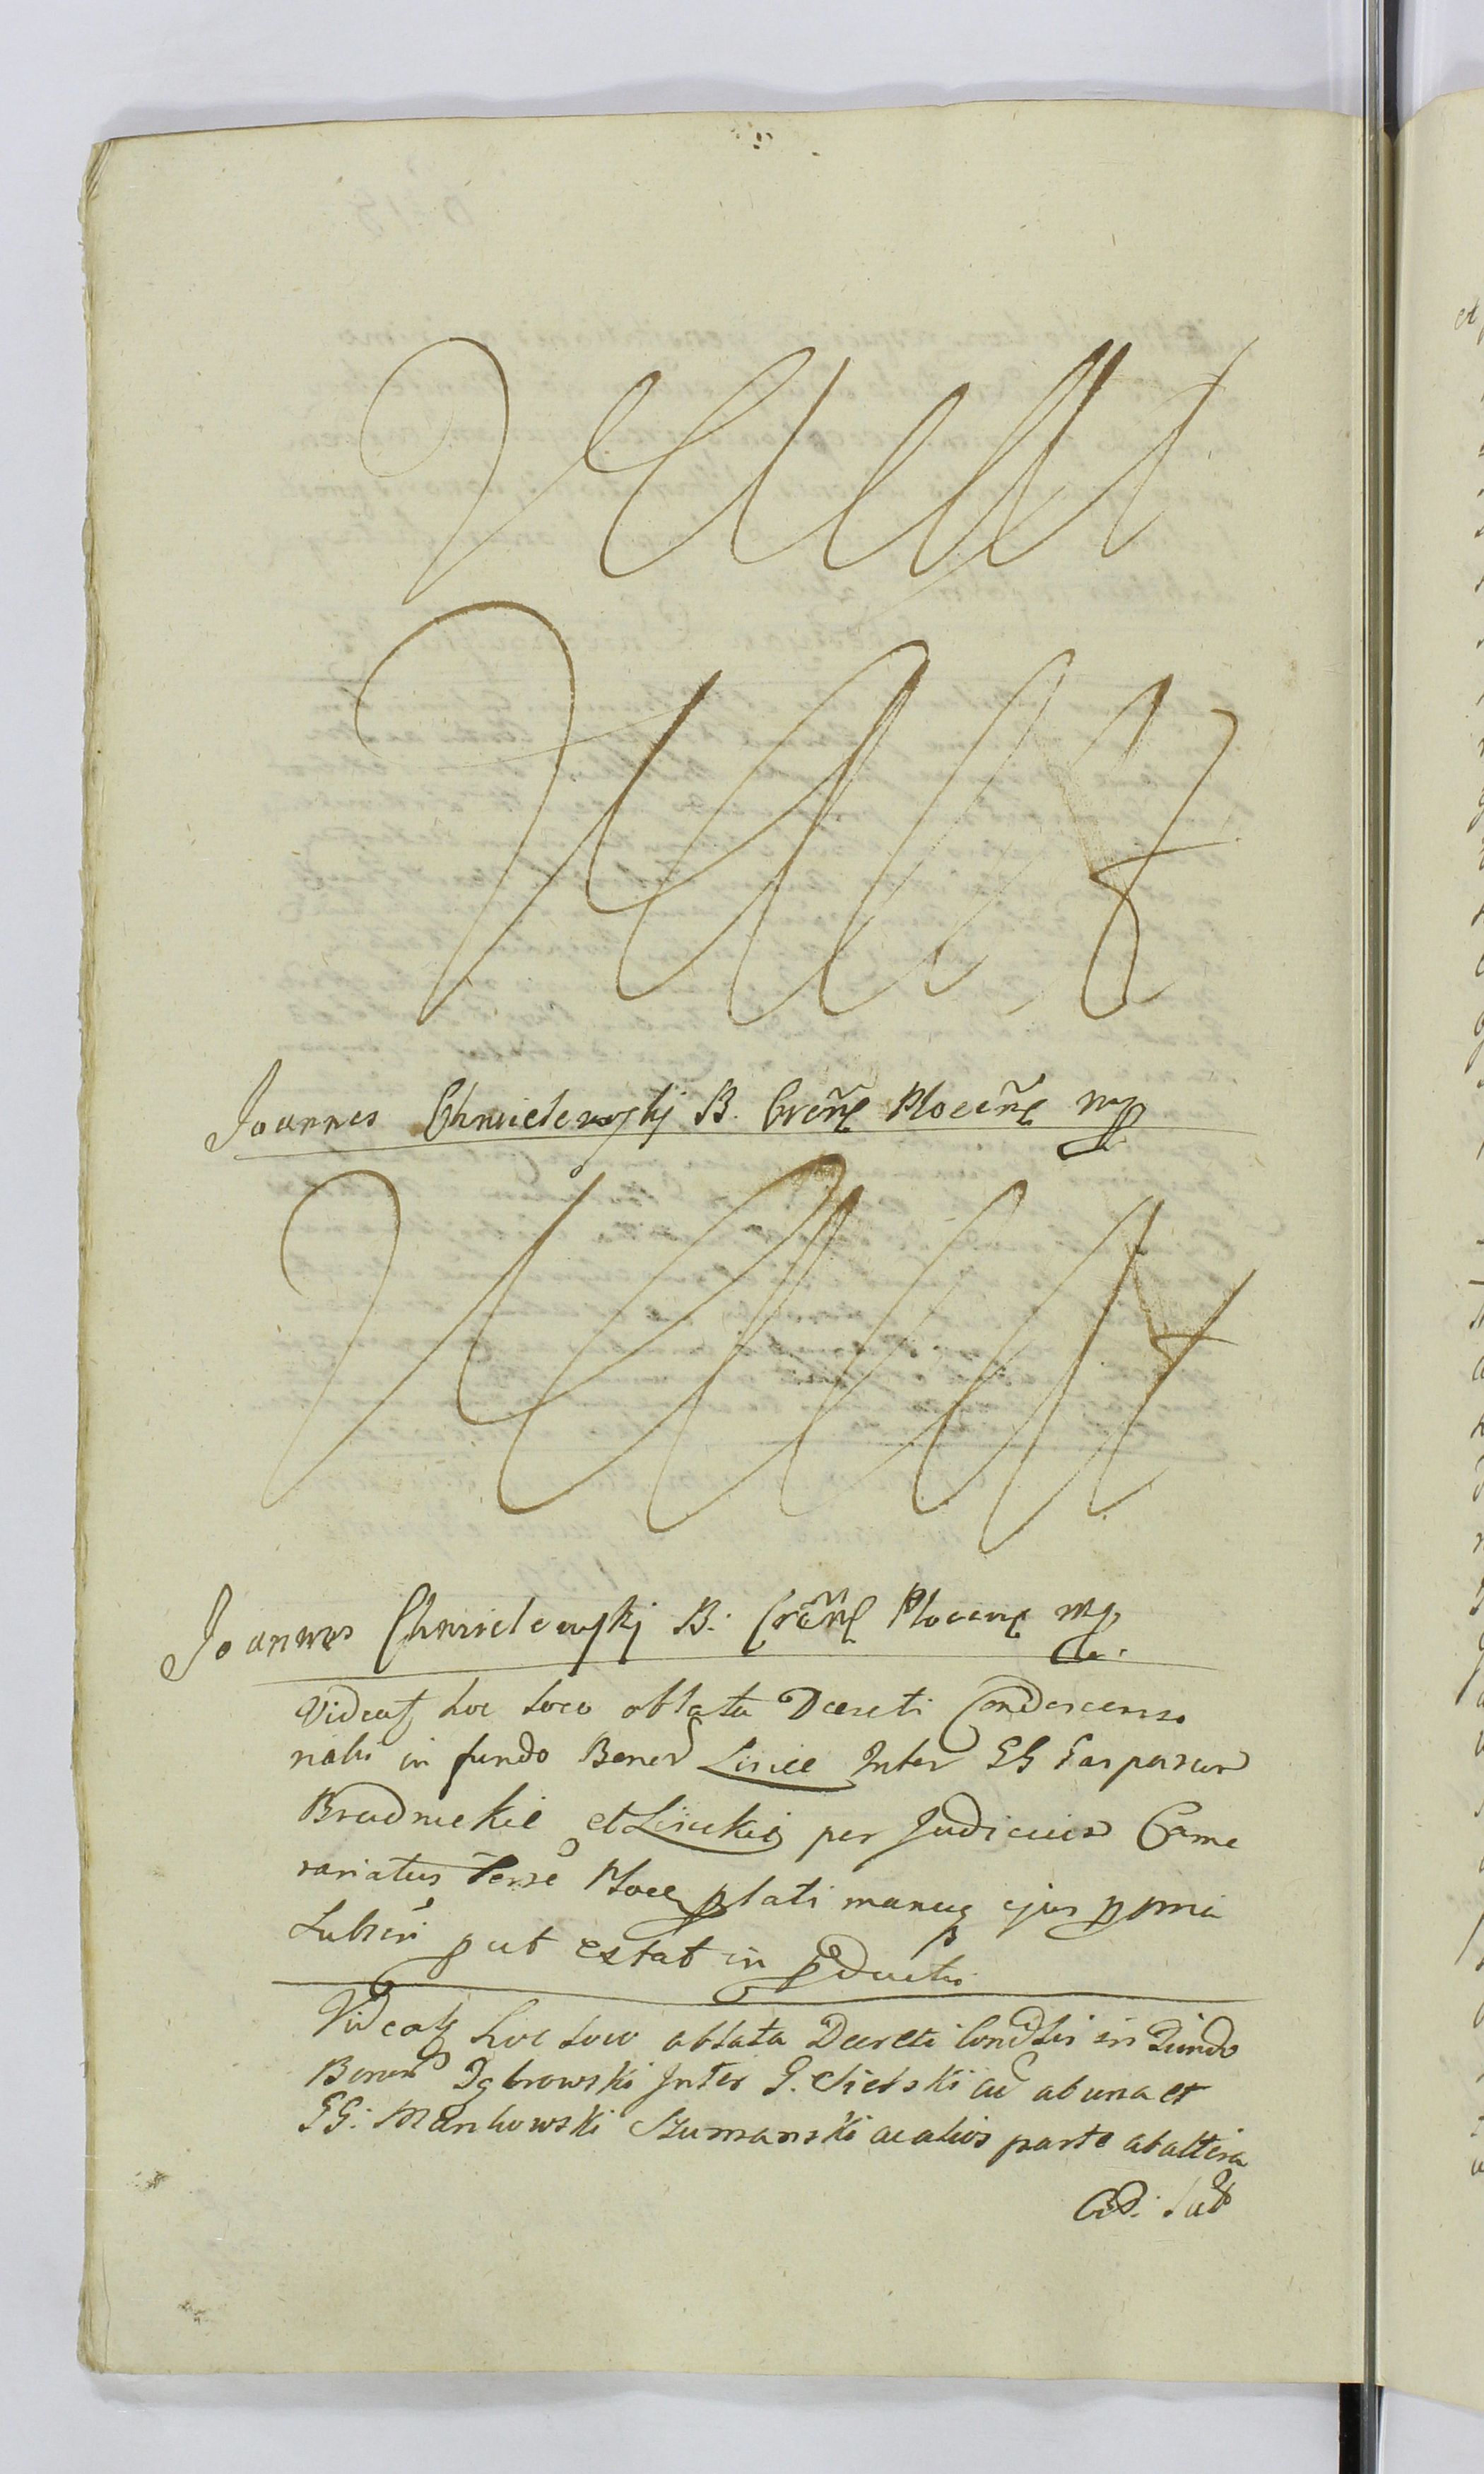 Vacat
Vacat
Joannes Chmielewskj B. Crcñs Ploceñs mp
Vacat
Joannes Chmielewskj B: Crcñs Plocens mp.
Videatz hoc loco oblata Decreti Condescenso
nalis in fundo Bonor Lisice Inter GG Gasparum
Brudnickie et Lisickie per Judicium Came
rariatus Terrë Ploceñ plati manuq ejus ppria
Subscri put extat in pductis
Videatz hoc loco oblata Decreti Condlis in fundo
Bonor Dąbrowski Inter G. Sielski ab una et
GG: Mańkowski Szumanski ac alios parte ab altera